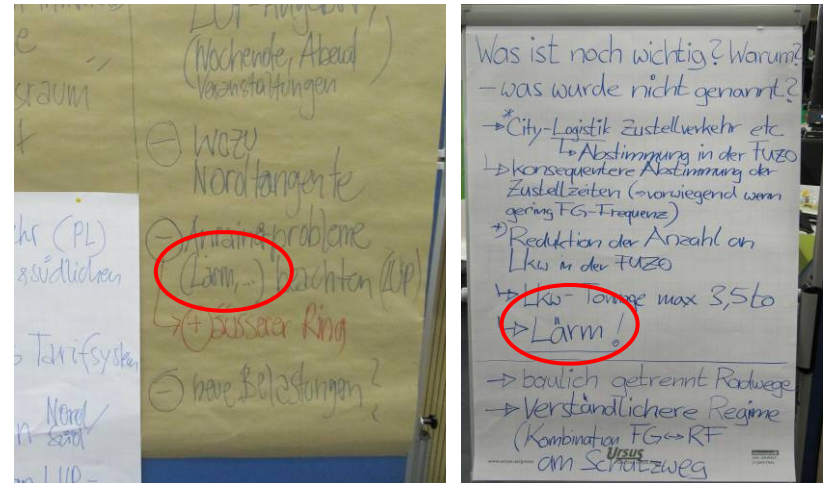 (Wochende, Abend
Veranstaltungen)
⊖ Wozu
Nordtangente
⊖ Anrainerprobleme
(Lärm,...) beachten (LUP)
↳ ⊕ äusserer Ring
⊖ neue Belastungen?
sraum
hr (PL)
südlichen
Tarifsystem
Nord/
Süd
LUP-
Was ist noch wichtig? Warum?
- was wurde nicht genannt?
→ *City-Logistik Zustellverkehr etc.
↳ Abstimmung in der FUZO
↳ konsequentere Abstimmung der
Zustellzeiten (→vorwiegend wenn
gering FG-Frequenz)
*) Reduktion der Anzahl an
Lkw in der FUZO
↳ Lkw-Tonnage max 3,5to
↳ Lärm!
→ baulich getrennt Radwege
→ Verständlichere Regime
(Kombination FG↔RF
am Schutzweg
Ursus